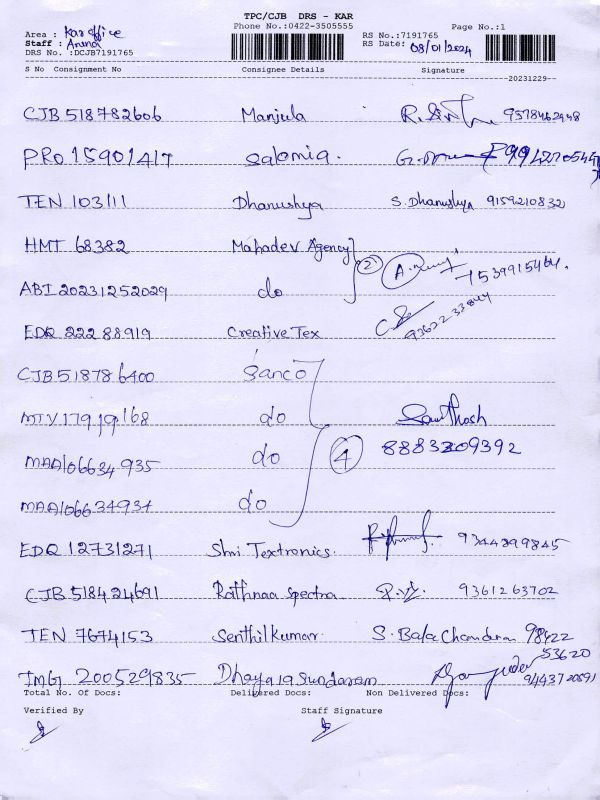 TPC/CJB DRS - KAR
Phone No.:0422-3505555
Page No.:1
Area : Kar office
Staff : Anend
DRS No. :DCJB7191765
RS No.:7191765
RS Date: 08/01/2024
S No Consignment No Consignee Details Signature
20231229--
CJB 518782606 Manjula 9578462948
PRO 15901417 Salomia.
TEN 103111 Dhanushya S. Dhanushya 9159210832
HMT 68382 Mahadev Agency
ABI 20231252029 do 2 7539915464.
EDQ 22288919 Creative Tex 93622 33844
CJB 518786400 Ganco
MTV 17919168 do Santhosh
MAA106634935 do 4 8883209392
MAA106634934 do
EDQ 12731271 Shri Textronics. 9344399845
CJB 518424691 Rathnaa Spectra 9361263702
TEN 7674153 Senthilkumar. S. Bala Chandran 98422
53620
TMG 200529835 Dhayala Sundaram 9443720891
Total No. Of Docs: Delivered Docs: Non Delivered Docs:
Verified By Staff Signature